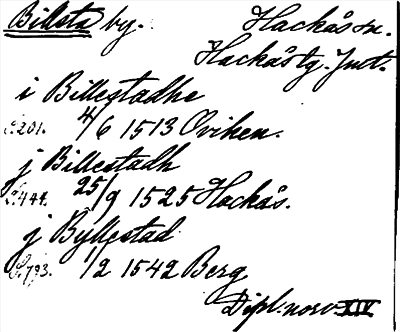 Billsta by. Hackås sn.
Hackås tg. Jmt.
i Billestadhe
S. 201. 4/6 1513 Oviken.
j Billestadh
S. 444. 25/9 1525 Hackås.
j Byllestad
S. 793. 1/2 1542 Berg
Dipl. norv. XIV